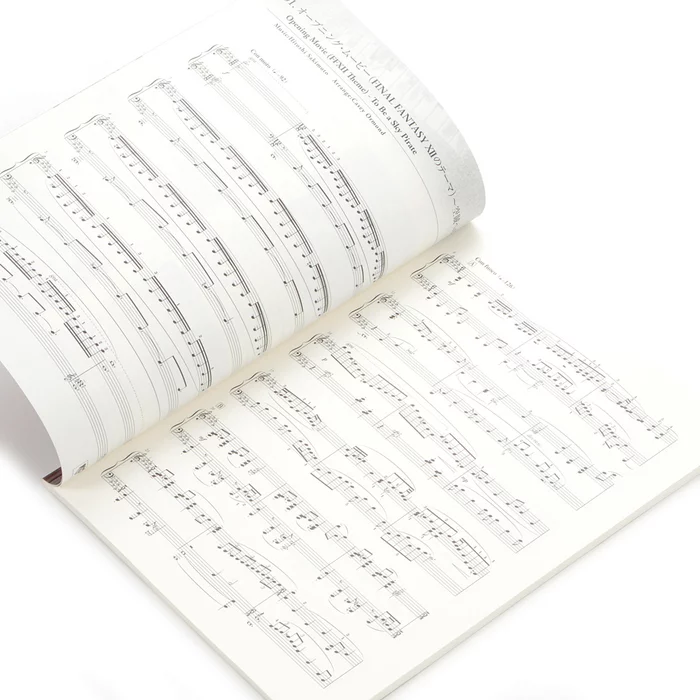 01. オープニング・ムービー (FINAL FANTASY XIIのテーマ) ～空賊
Opening Movie (FFXII Theme) - To Be a Sky Pirate
Music:Hitoshi Sakimoto Arrange:Casey Ormond